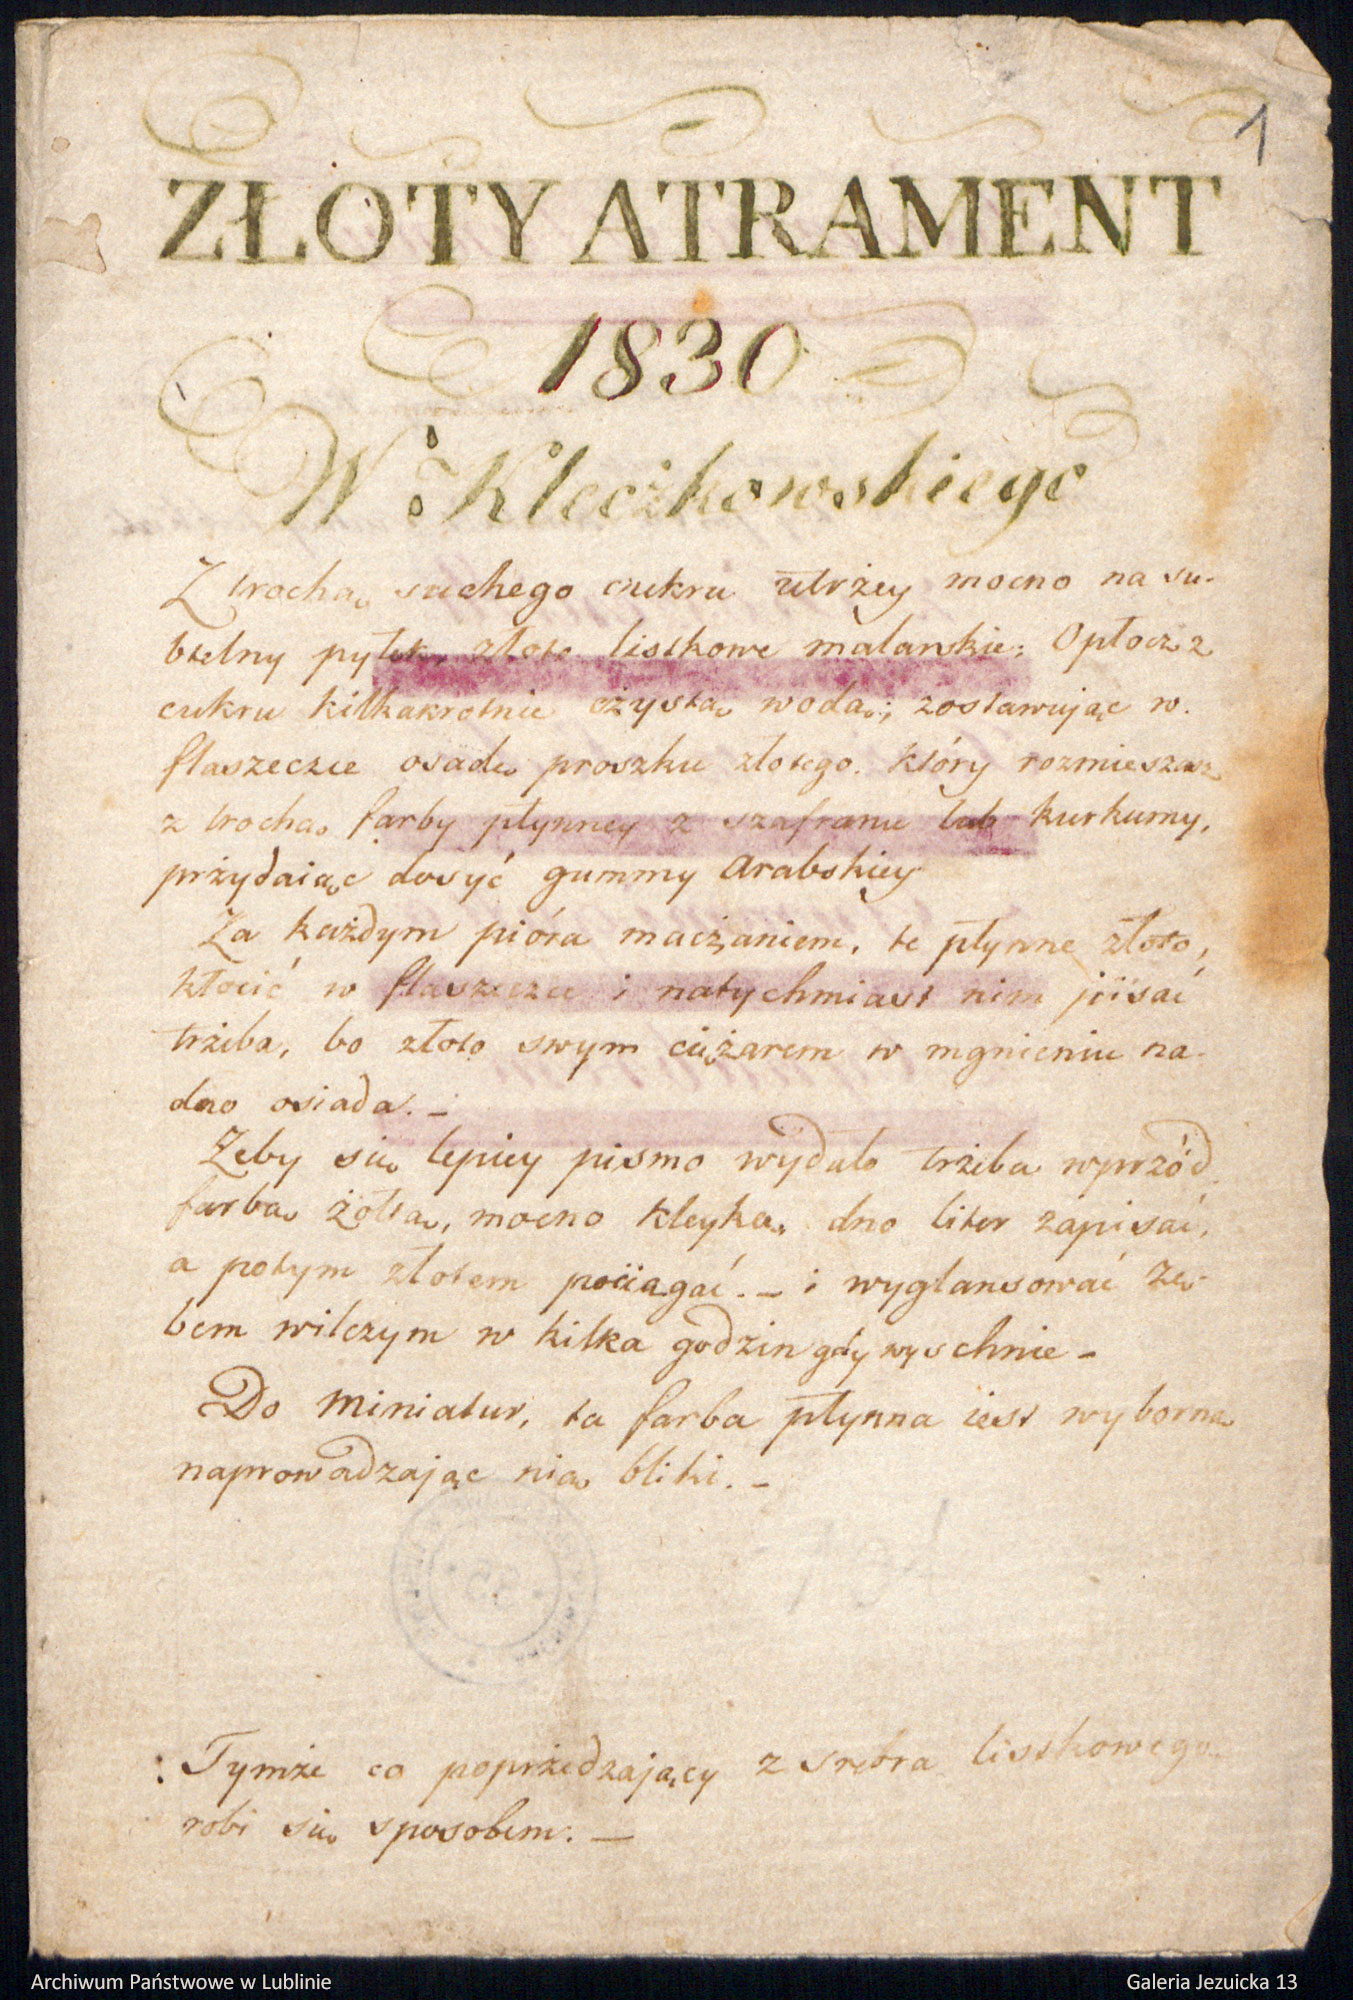 1
ZŁOTY ATRAMENT
1830
W: Kleczkowskiego
Z trochą suchego cukru utrżey mocno na su-
btelny pyłek, złoto listkowe malarskie; Opłocz z
cukru kilkakrotnie czystą wodą; zostawując w
flaszeczce osadę proszku złotego. który rozmieszasz
z trochą farby płynney z szafranu lub kurkumy,
prżydaiąc dosyć gummy Arabskiey
Za każdym pióra maczaniem, te płynne złoto,
kłócić w flaszeczce i natychmiast nim pisać
trżeba, bo złoto swym ciężarem w mgnieniu na
dno osiada. –
Żeby się lepiey pismo wydało trżeba wprzód
farbą żółtą, mocno kleyką, dno liter zapisać,
a potym złotem pociągać. – i wyglansować zę-
bem wilczym w kilka godzin gdy wyschnie –
Do miniatur, ta farba płynna iest wyborną
naprowadzając nią bliki. –
: Tymże co poprżedzający z srebra listkowego
robi się sposobem. —
Archiwum Państwowe w Lublinie
Galeria Jezuicka 13